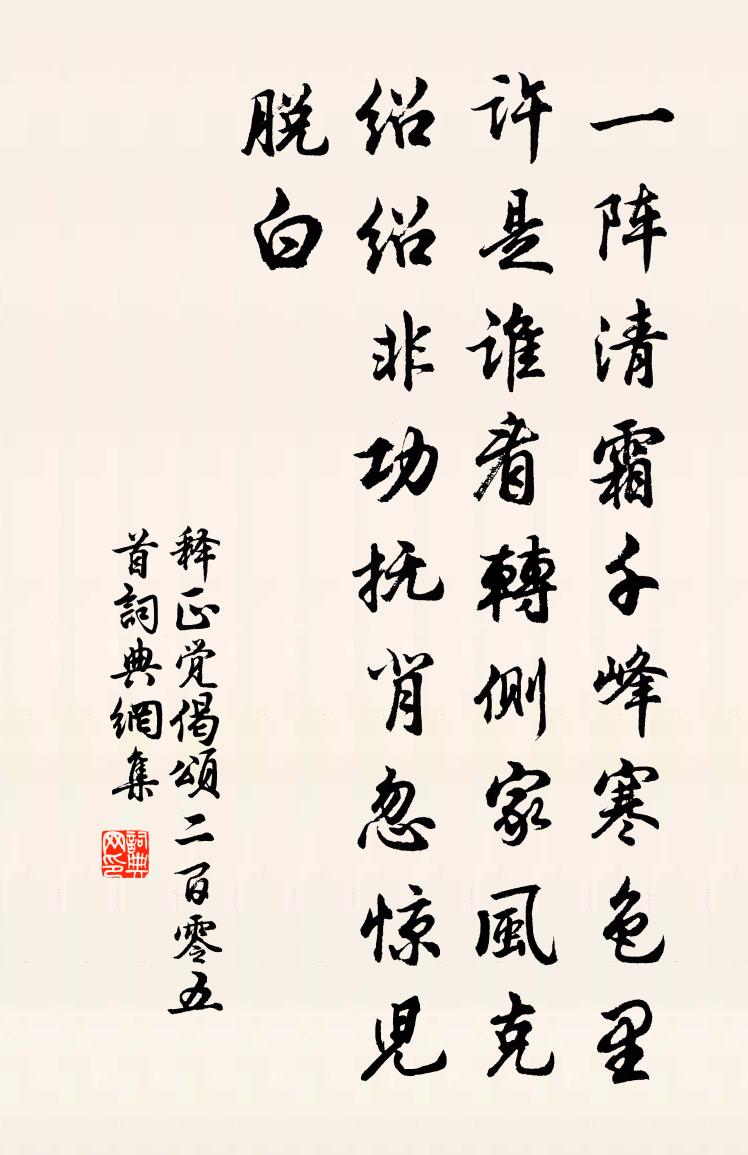 一阵清霜千峰寒色里
许是谁看轉側家風克
绍绍非功抚背忽惊児
脱白
释正觉偈頌二百零五
首詞典網集
詞典網印